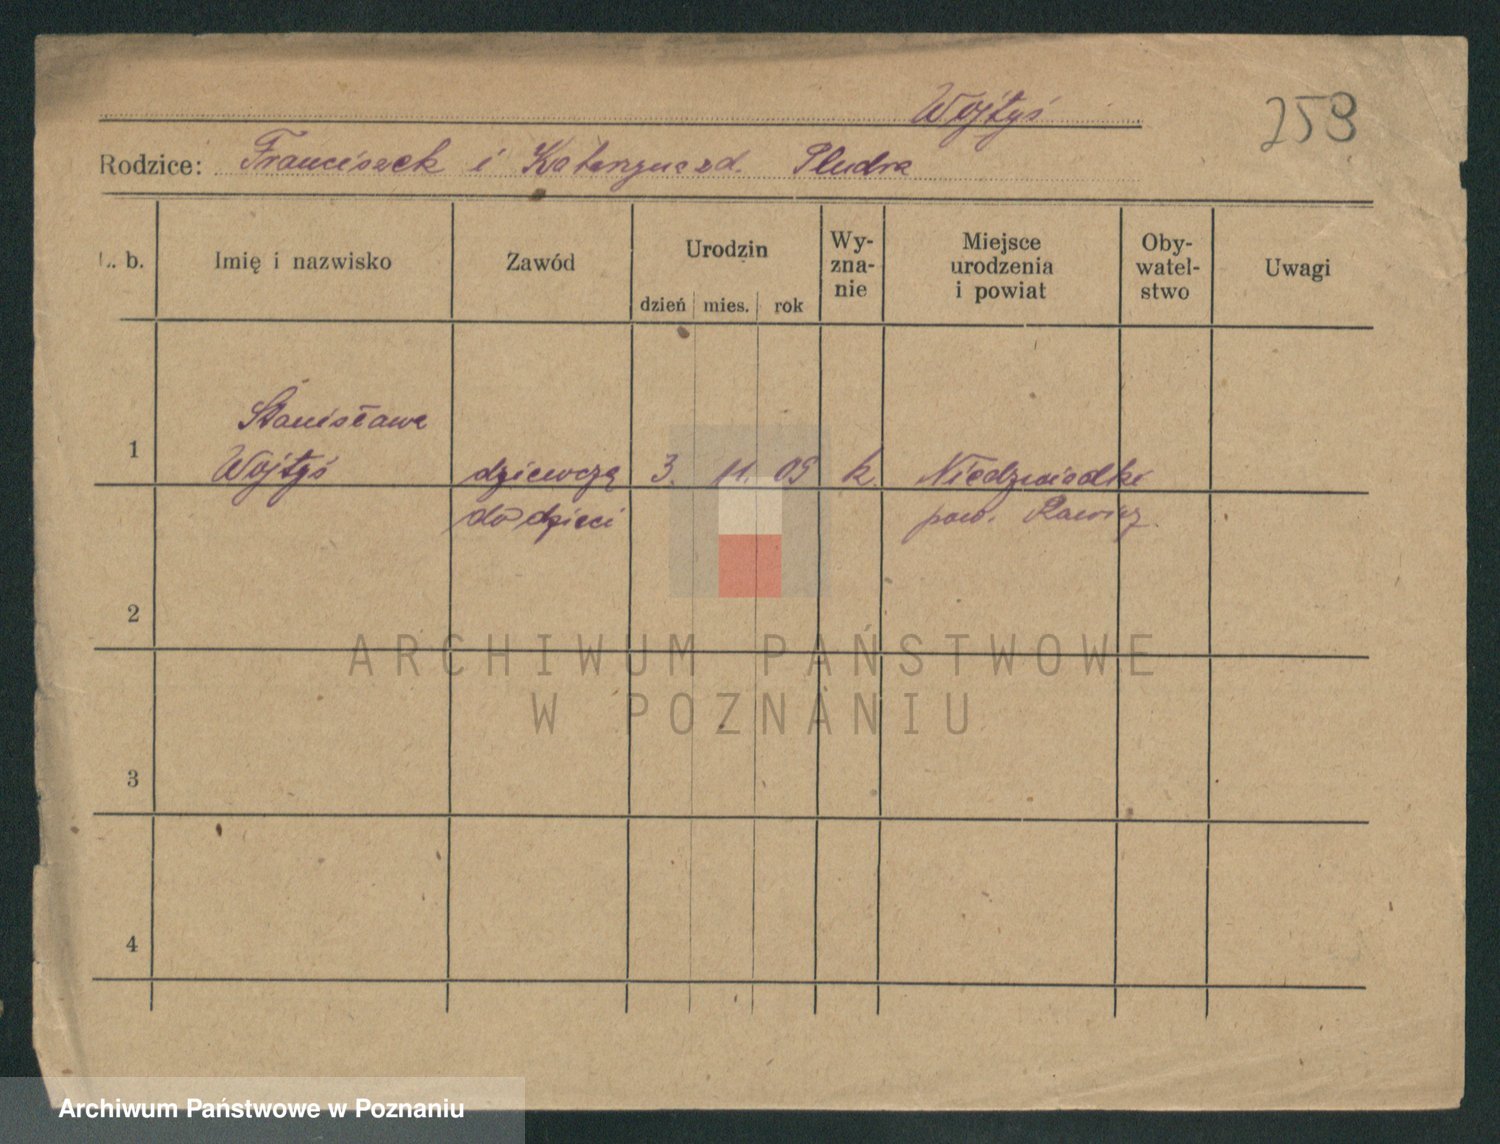 Wojtyś
258
Rodzice: Franciszek i Katarzyna zd. Pludra
L. b.
Imię i nazwisko
Zawód
Urodzin
dzień mies. rok
Wy-
zna-
nie
Miejsce
urodzenia
i powiat
Oby-
watel-
stwo
Uwagi
1
Stanisława
Wojtyś
dziewczą
do dzieci
3. 11. 05
k.
Niedzwiadki
pow. Rawicz
2
3
4
ARCHIWUM PAŃSTWOWE
W POZNANIU
Archiwum Państwowe w Poznaniu